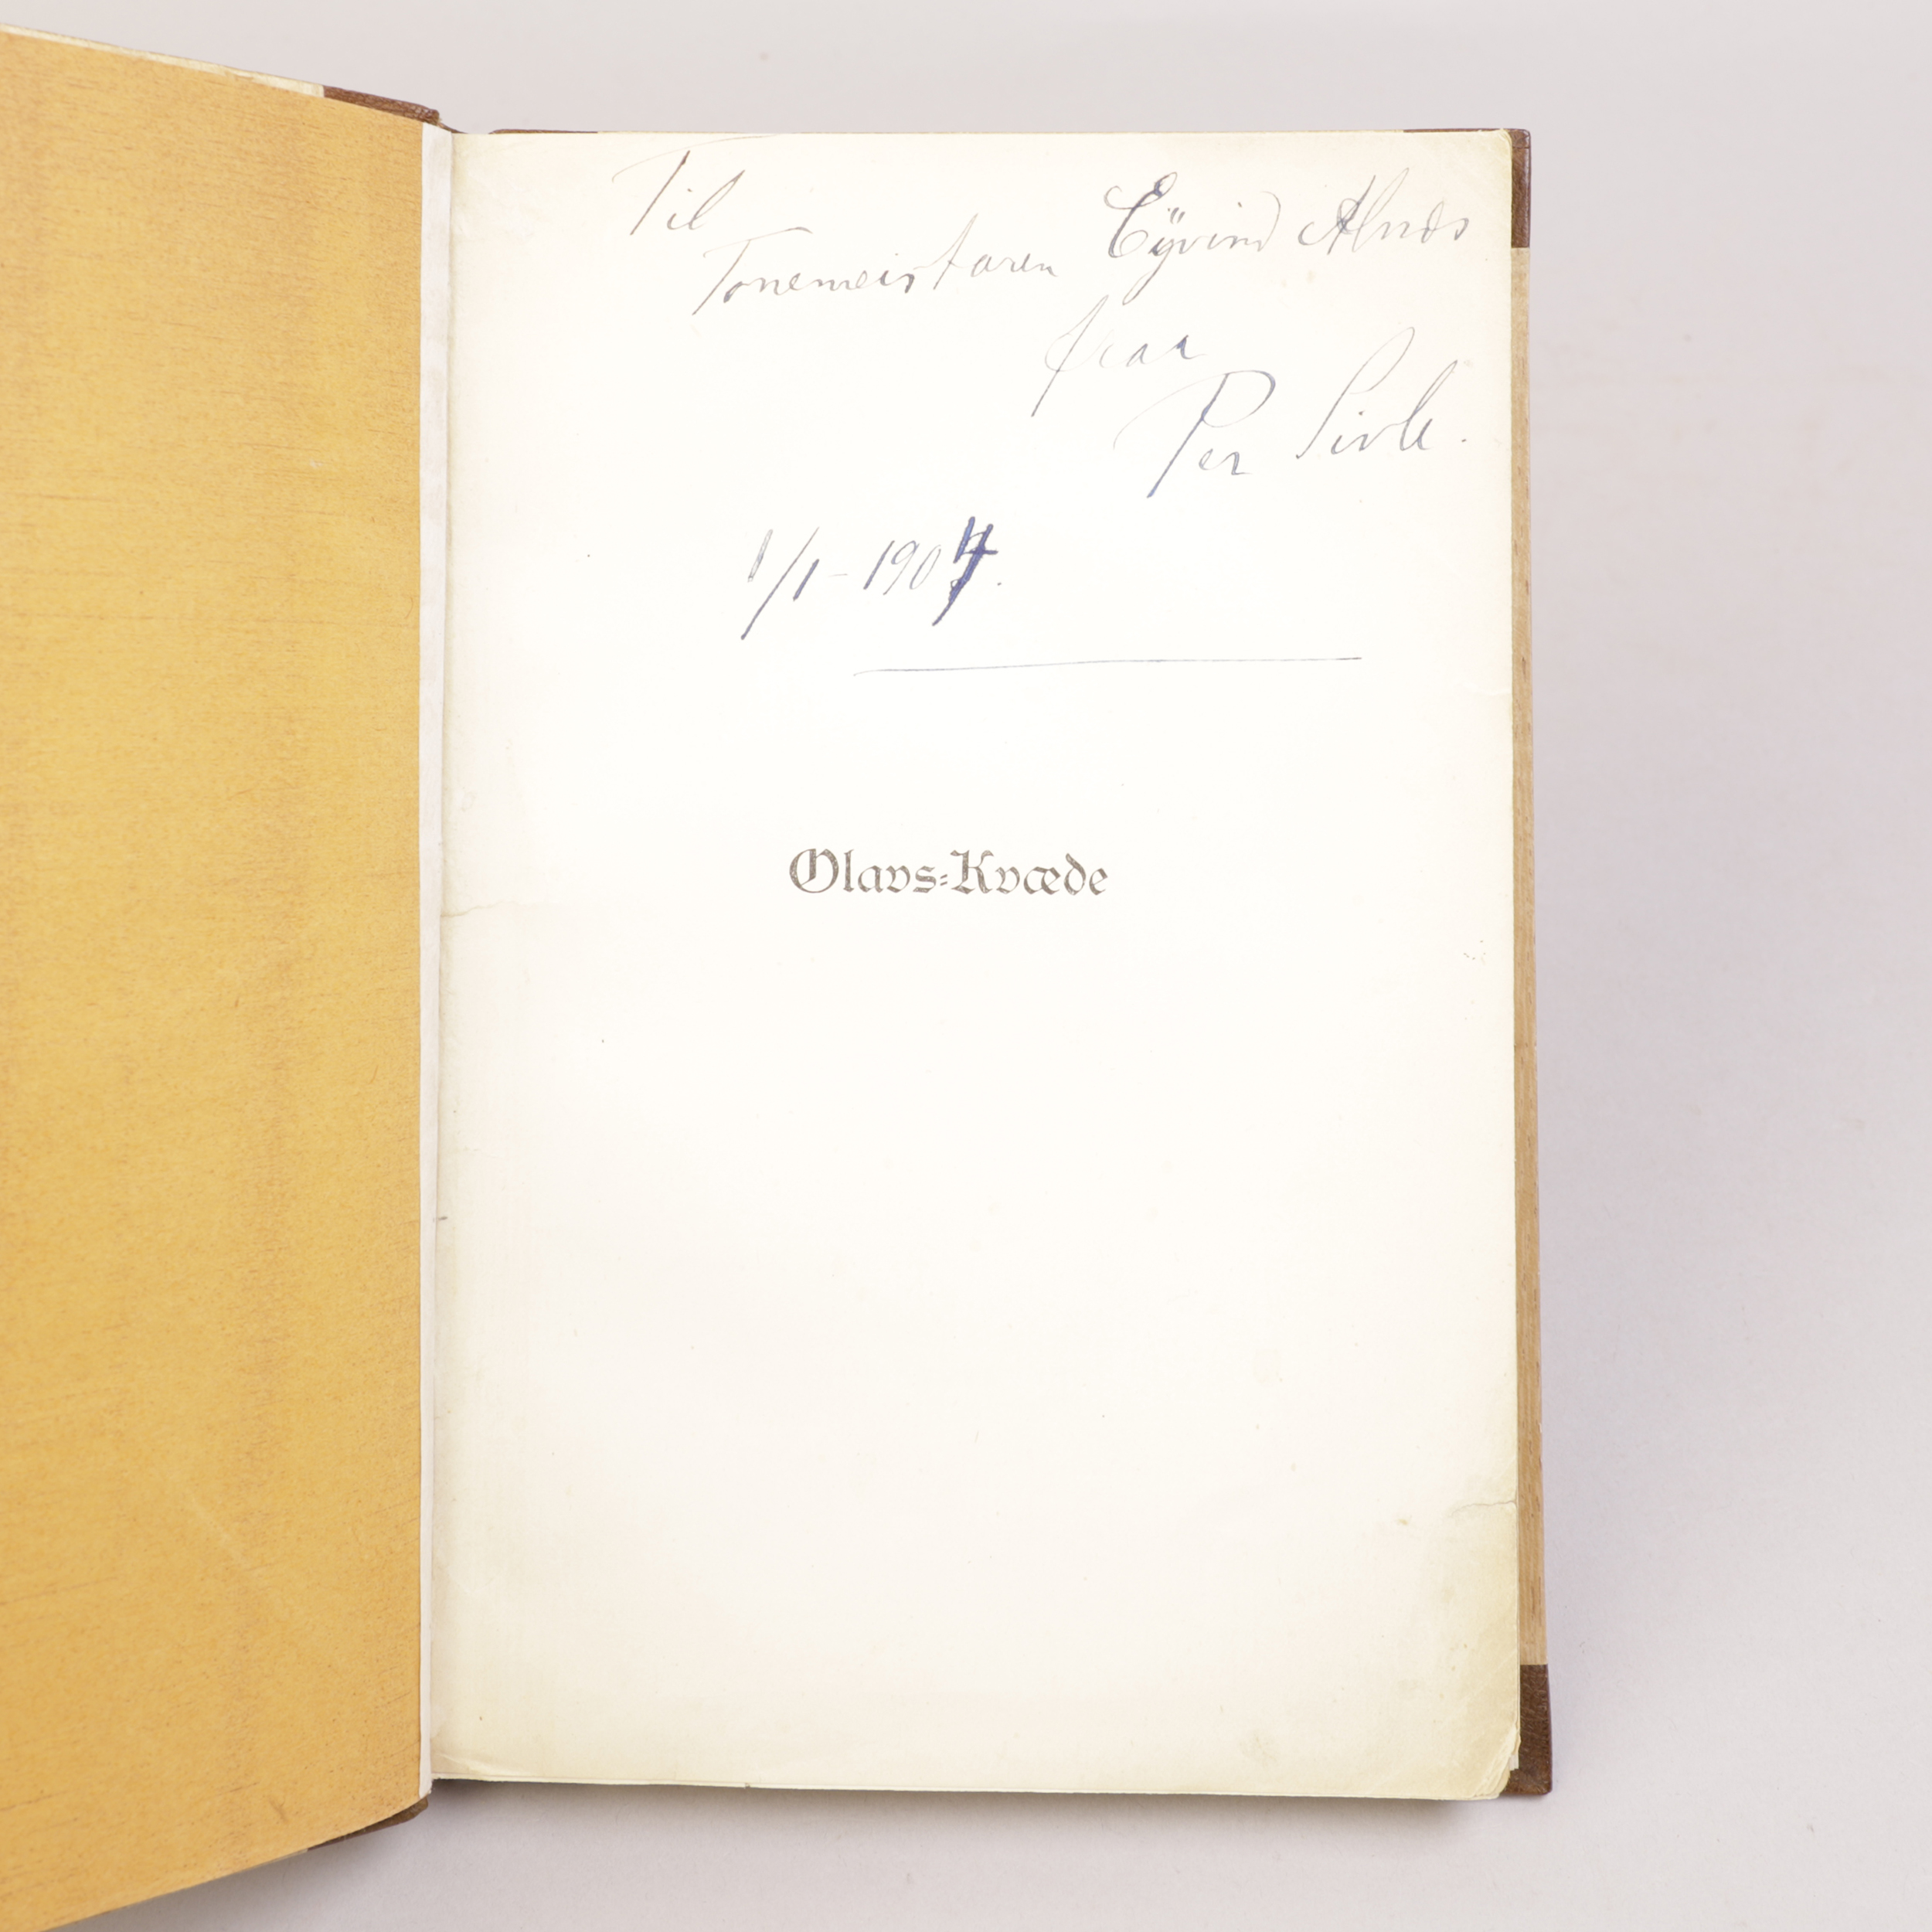 Til
Tonemeistaren Eÿvind Alnæs
fraa
Per Sivle.
1/1-1904.
Olavs-Kvæde